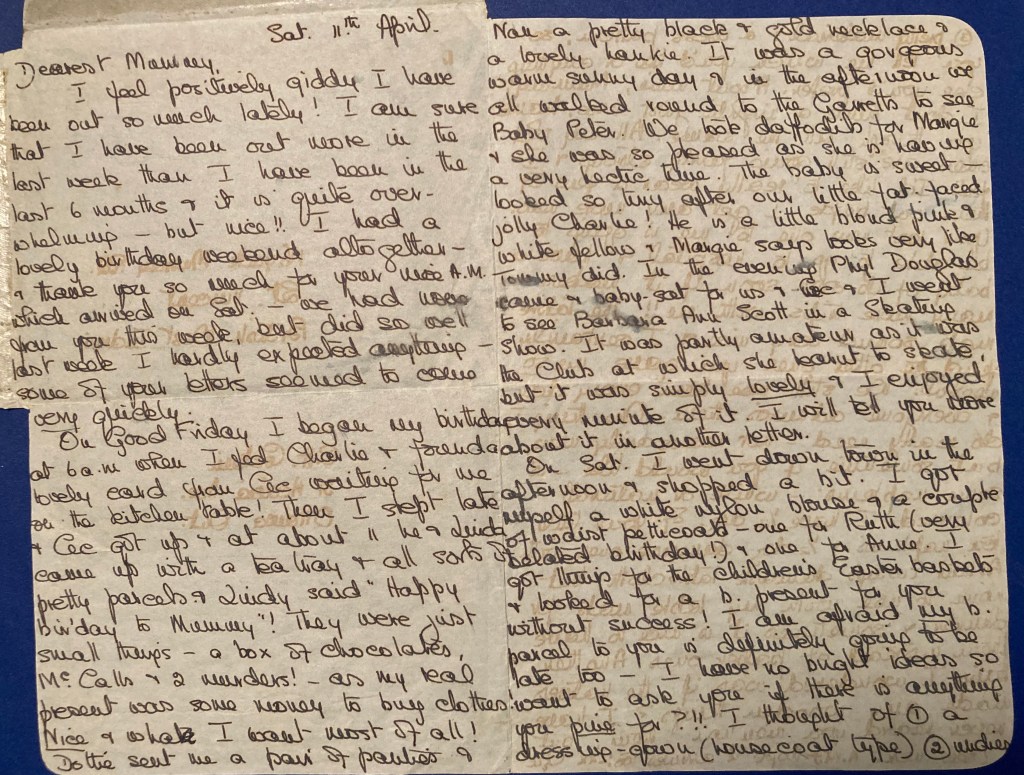 Sat. 11th April.
Dearest Mummy,
I feel positively giddy I have
been out so much lately! I am sure
that I have been out more in the
last week than I have been in the
last 6 months & it is quite over-
whelming – but nice!! I had a
lovely birthday weekend altogether –
& thank you so much for your nice A.M.
which arrived on Sat. – we had none
from you this week, but did so well
last week I hardly expected anything –
some of your letters seemed to come
very quickly.
On Good Friday I began my birthday
at 6 a.m when I fed Charlie & found a
lovely card from Cec waiting for me
on the kitchen table! Then I slept late
& Cec got up & at about 11 he & Lindy
came up with a tea tray & all sorts of
pretty parcels & Lindy said "Happy
birday to Mummy"! They were just
small things – a box of chocolates,
McCalls & 2 murders! – as my real
present was some money to buy clothes!
Nice & what I want most of all!
Dottie sent me a pair of panties &
Nan a pretty black & gold necklace &
a lovely hankie. It was a gorgeous
warm sunny day & in the afternoon we
all walked round to the Garretts to see
Baby Peter. We took daffodils for Margie
& she was so pleased as she is having
a very hectic time. The baby is sweet –
looked so tiny after our little fat-faced
jolly Charlie! He is a little blond pink &
white fellow & Margie says looks very like
Tommy did. In the evening Phyl Douglas
came & baby-sat for us & Cec & I went
to see Barbara Ann Scott in a Skating
Show. It was partly amateur as it was
the Club at which she learnt to skate,
but it was simply lovely & I enjoyed
every minute of it. I will tell you more
about it in another letter.
On Sat. I went down town in the
afternoon & shopped a bit. I got
myself a white nylon blouse & a couple
of waist petticoats – one for Ruth (very
belated birthday!) & one for Anne. I
got things for the children's Easter baskets
& looked for a b. present for you
without success! I am afraid my b.
parcel to you is definitely going to be
late too – I have no bright ideas so
want to ask you if there is anything
you pine for?!! I thought of ① a
dressing-gown (housecoat type) ② undies